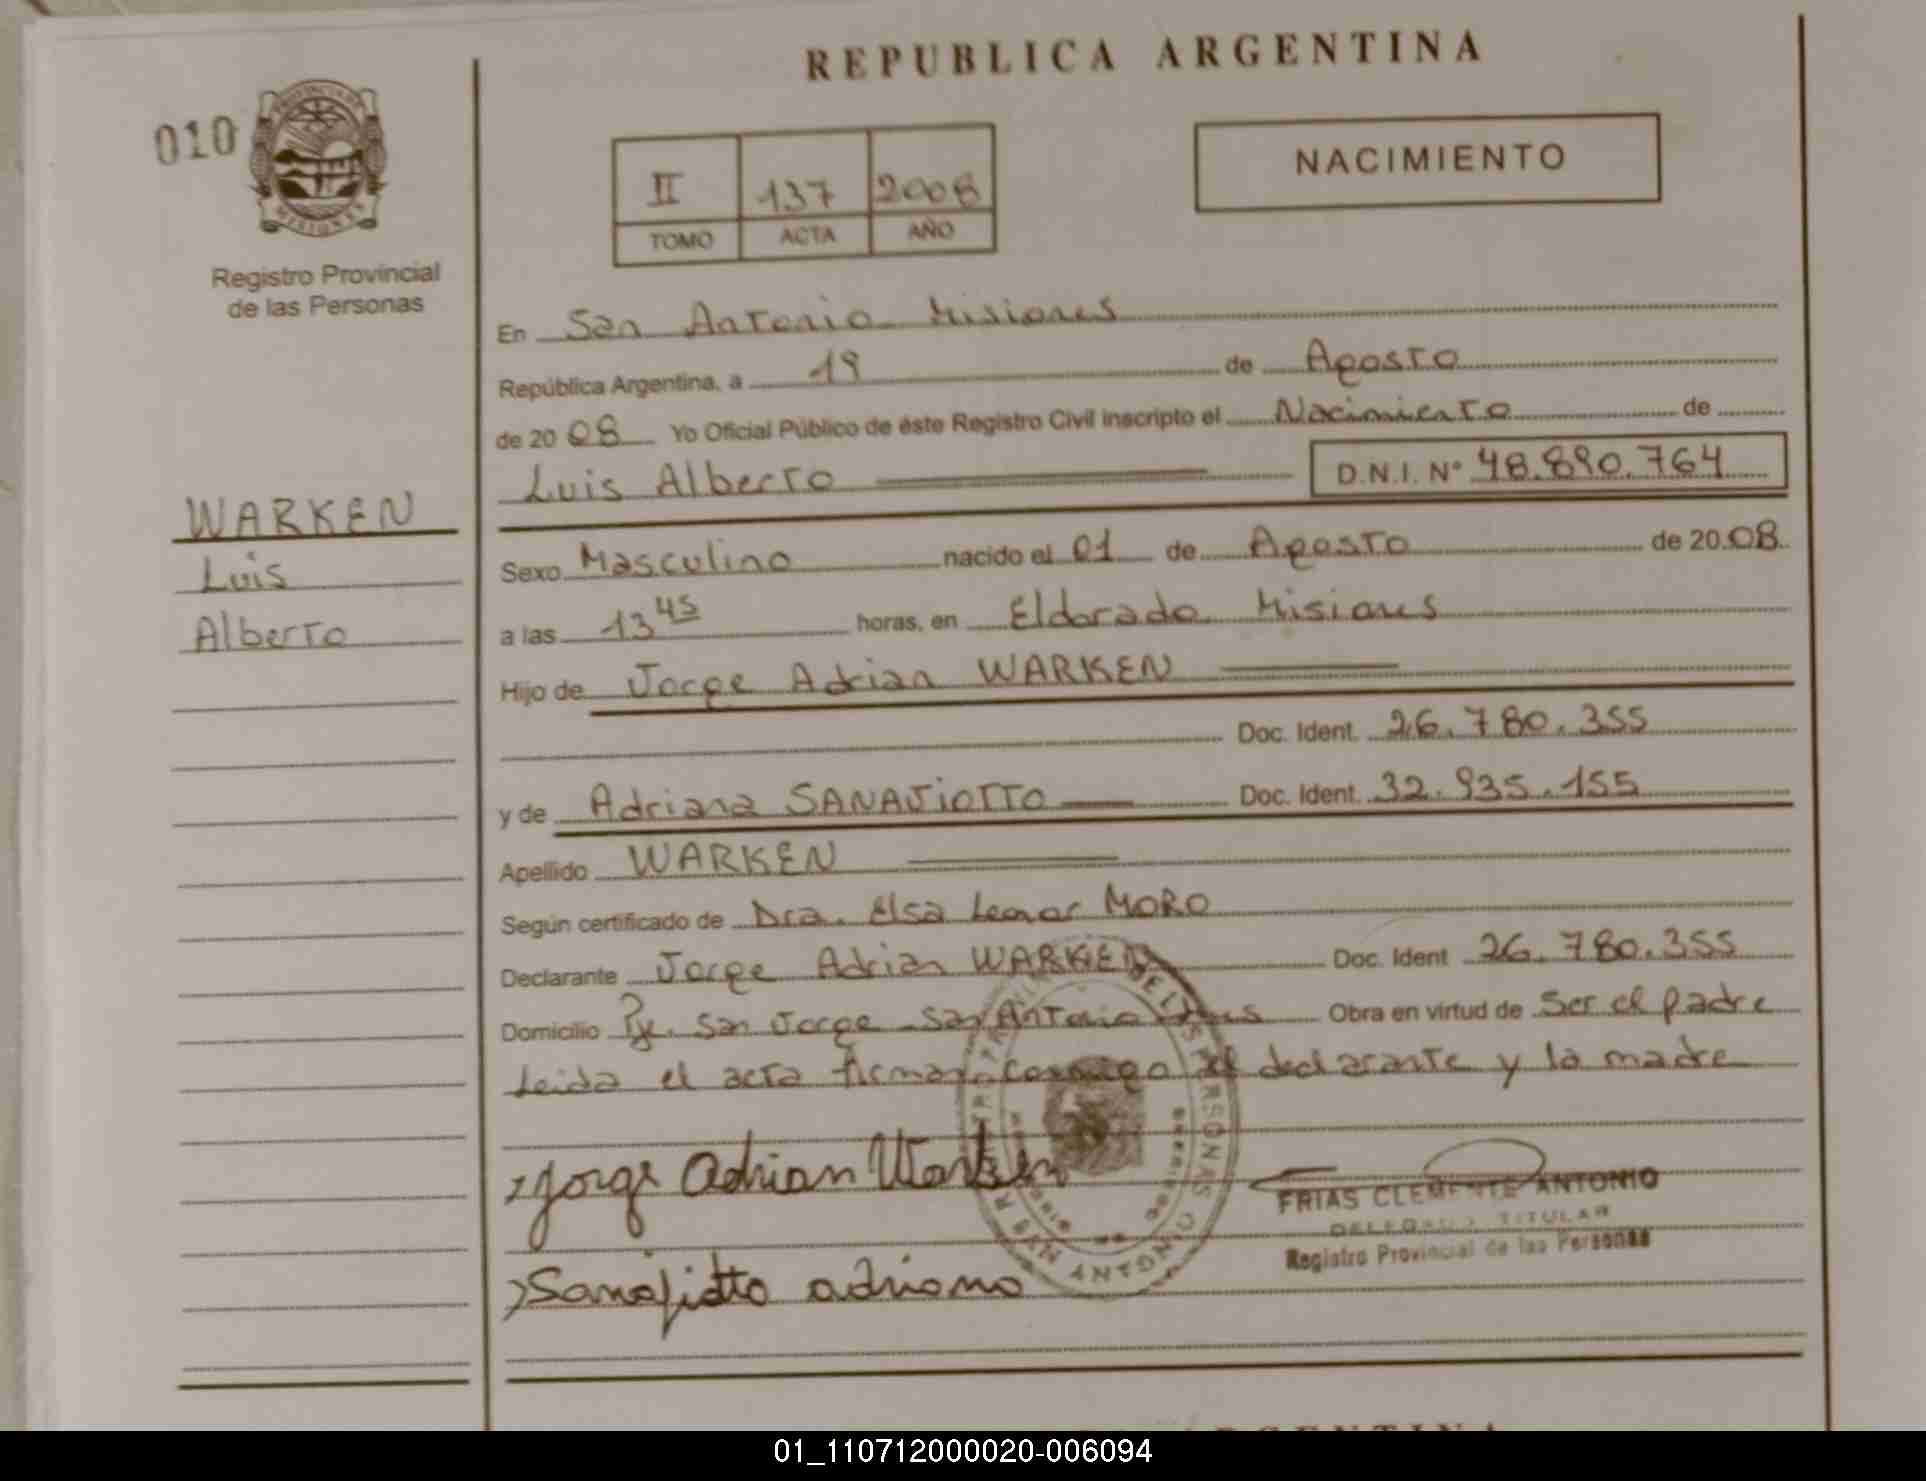 REPUBLICA ARGENTINA
010
PROVINCIA DE MISIONES
Registro Provincial
de las Personas
II 137 2008
TOMO ACTA AÑO
NACIMIENTO
En San Antonio Misiones
República Argentina, a 19 de Agosto
de 2008 Yo Oficial Público de éste Registro Civil inscripto el Nacimiento de
Luis Alberto D.N.I. N° 48.890.764
WARKEN
Luis
Alberto
Sexo Masculino nacido el 01 de Agosto de 2008
a las 13 45 horas, en Eldorado Misiones
Hijo de Jorge Adrian WARKEN
Doc. Ident. 26.780.355
y de Adriana SANAJIOTTO Doc. Ident. 32.935.155
Apellido WARKEN
Según certificado de Dra. Elsa Leonor MORO
Declarante Jorge Adrian WARKEN Doc. Ident 26.780.355
Domicilio Pje. San Jorge San Antonio Obra en virtud de Ser el padre
Leida el acta firman conmigo el declarante y la madre
Jorge Adrian Warken
Sanajiotto adriana
FRIAS CLEMENTE ANTONIO
DELEGADO TITULAR
Registro Provincial de las Personas
01_110712000020-006094